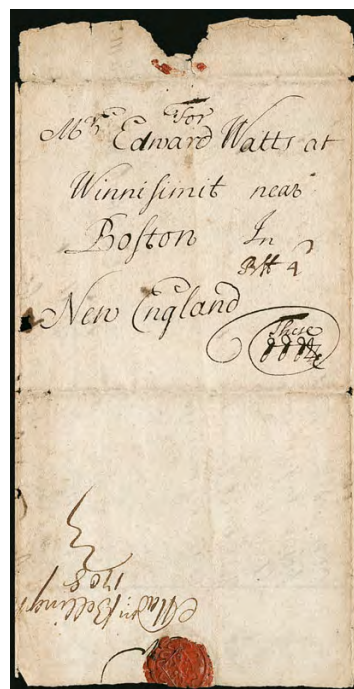 For
Mr. Edward Watts at
Winnisimit near
Boston In
New England
These
1708